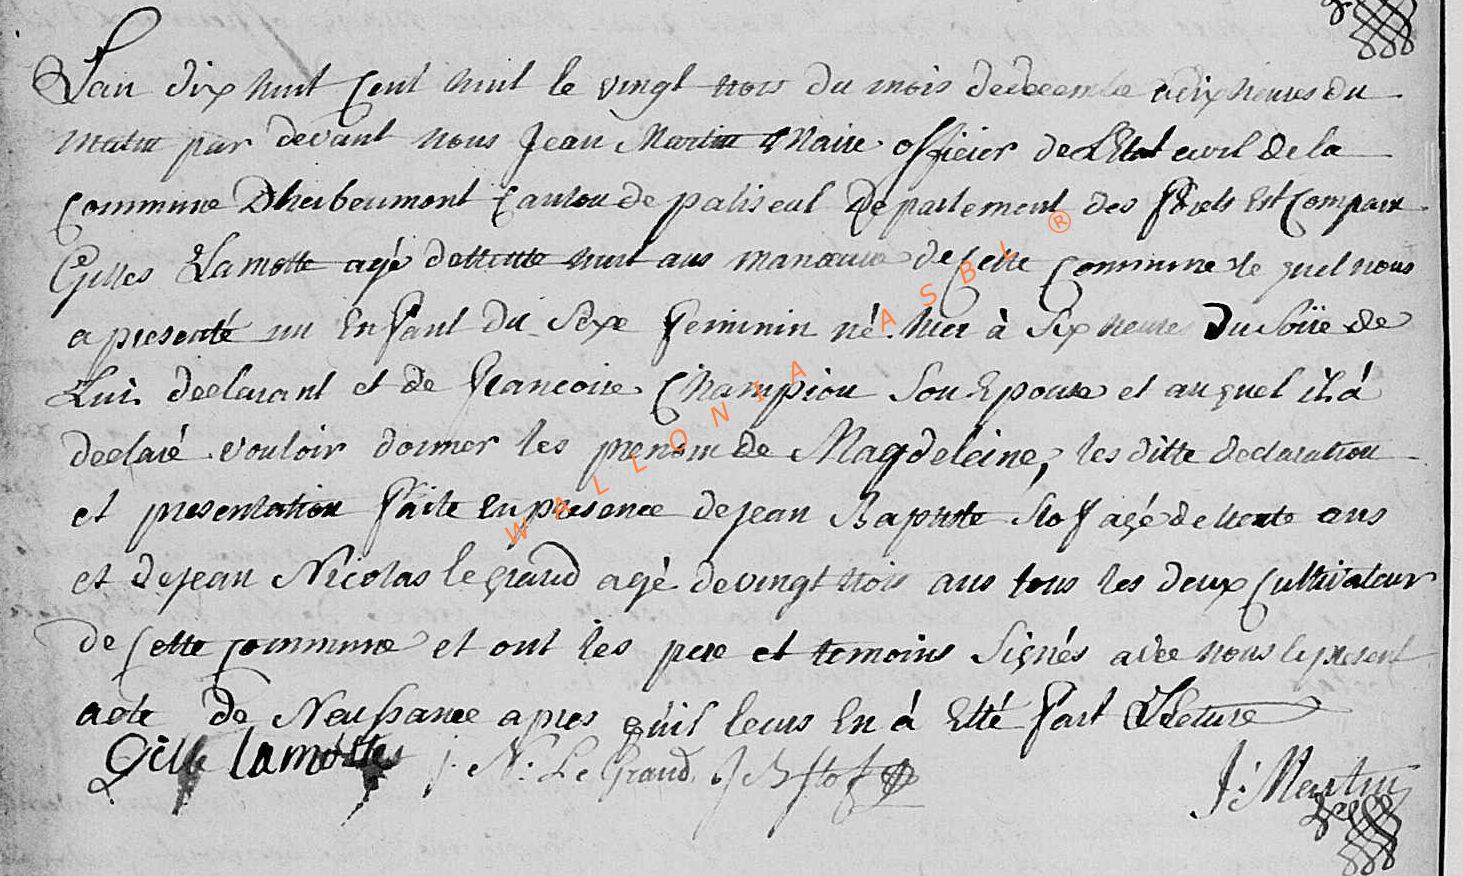 L'an dix huit Cent huit le vingt trois du mois de decembre a dix heures du
matin par devant nous Jean Martin Maire officier de L'Etat civil de la
Commune D'herbeumont Canton de paliseul Departement des forets Est Comparu
Gilles Lamotte agé de trente huit ans manoeuvre de Cette Commune le quel nous
a presenté un Enfant du Sexe feminin né hier à Six heures Du Soiïe de
Lui declarant et de francoise Champion Son Epouse et au quel il à
declaré vouloir donner les prenom de Magdeleine, les ditte declaration
et presentation faite En presence de jean Baptiste Stof agé de trente ans
et de jean Nicolas le grand agé de vingt trois ans tous les deux Cultivateur
de Cette Commune et ont les pere et temoins Signés avec nous le present
acte de Neussance apres qu'il leurs En à Etté fait Lecture
Gille lamottes j: N: Le Grand J B Stof J: Martin
WALLONIA ASBL ®